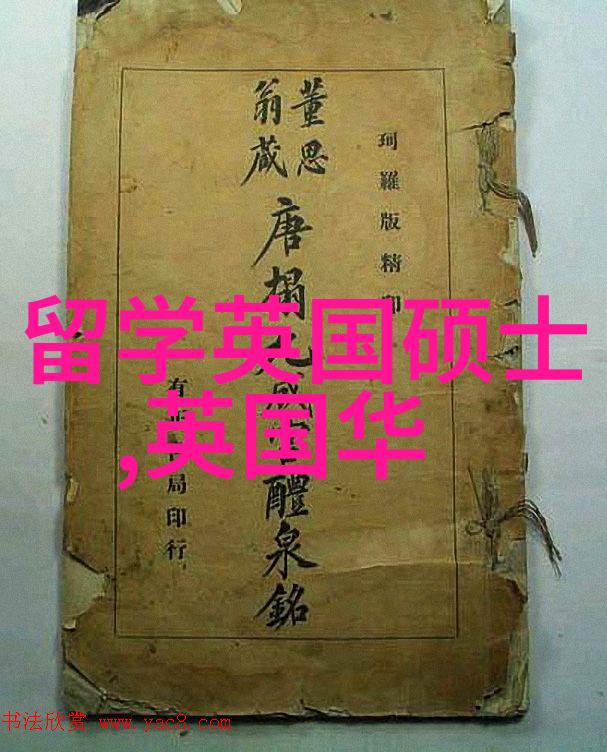 珂羅版精印
董思
翁藏
唐搨九成醴泉銘
有局印行
留学英国硕士
,英国华
书法欣赏 www.yac8.com